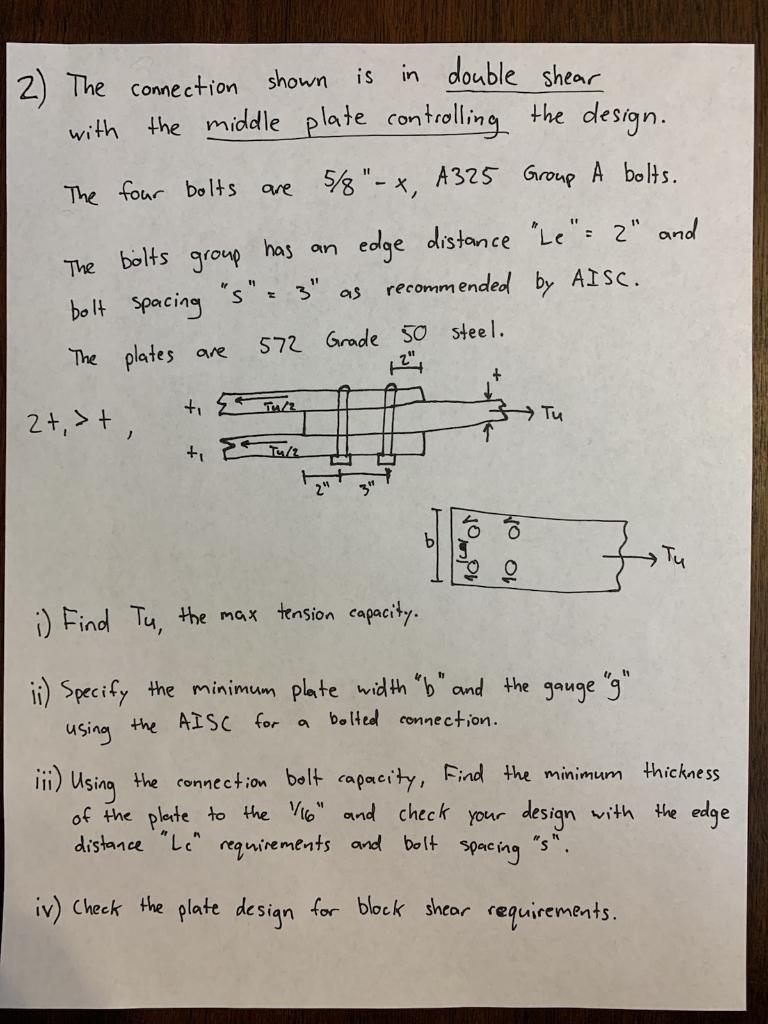 2) The connection shown is in double shear
with the middle plate controlling the design.
The four bolts are 5/8"-x, A325 Group A bolts.
The bolts group has an edge distance "Le" = 2" and
bolt spacing "s" = 3" as recommended by AISC.
The plates are 572 Grade 50 steel.
2"
2t₁ > t,
t₁
Tu/2
t
Tu
t₁
Tu/2
2"
3"
b
g
Tu
i) Find Tu, the max tension capacity.
ii) Specify the minimum plate width "b" and the gauge "g"
using the AISC for a bolted connection.
iii) Using the connection bolt capacity, Find the minimum thickness
of the plate to the 1/16" and check your design with the edge
distance "Lc" requirements and bolt spacing "s".
iv) Check the plate design for block shear requirements.